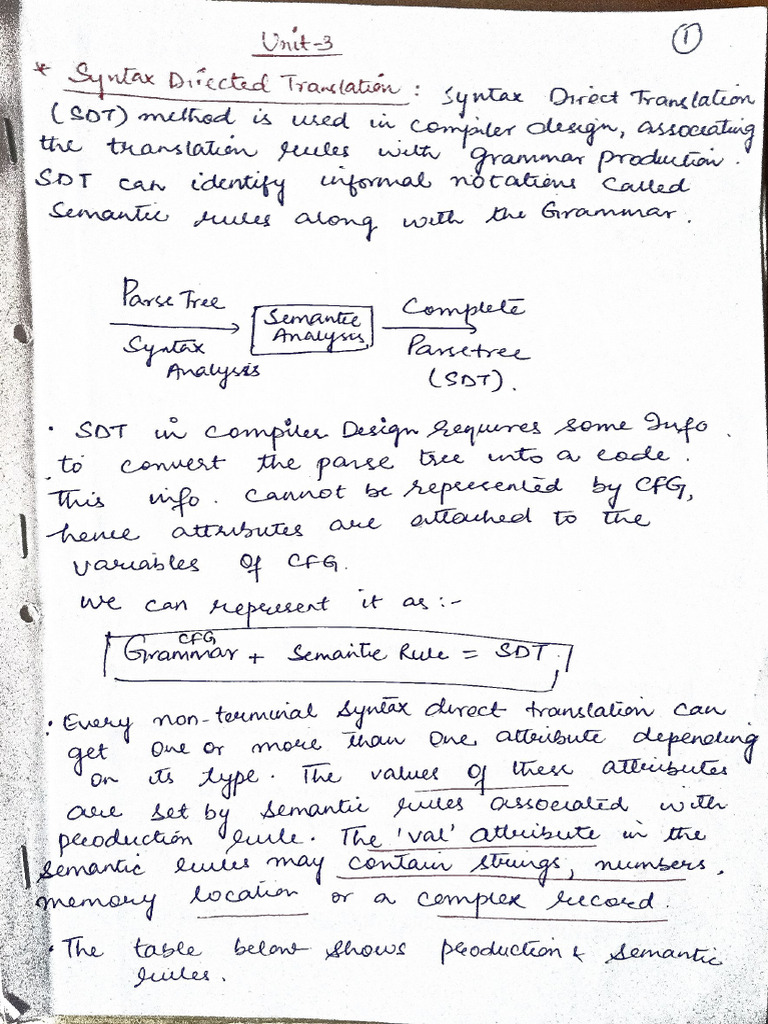 Unit-3
1
* Syntax Directed Translation : Syntax Direct Translation
(SDT) method is used in compiler design, associating
the translation rules with grammar production.
SDT can identify informal notations called
Semantic rules along with the Grammar.
Parse Tree
Syntax
Analysis
Semantic
Analysis
Complete
Parsetree
(SDT).
• SDT in compiler Design requires some Info.
to convert the parse tree into a code.
This info. cannot be represented by CFG,
hence attributes are attached to the
variables of CFG.
We can represent it as :-
CFG
Grammar + Semantic Rule = SDT.
• Every non-terminal Syntax direct translation can
get one or more than one attribute depending
on its type. The values of these attributes
are set by semantic rules associated with
production rule. The 'val' attribute in the
semantic rules may contain strings, numbers,
memory location or a complex record.
• The table below shows production & semantic
rules.